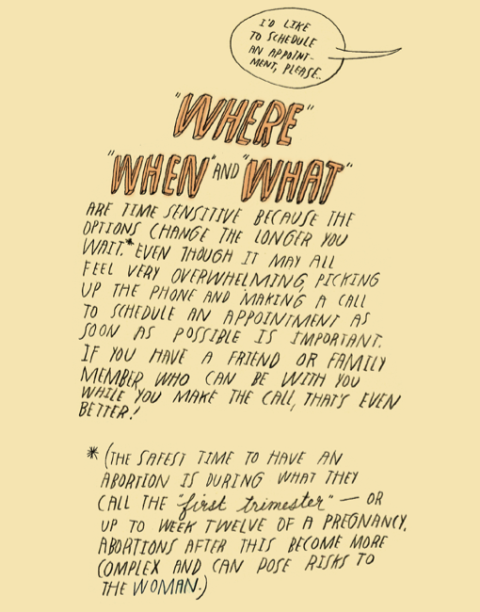 I'D LIKE
TO SCHEDULE
AN APPOINT-
MENT, PLEASE..
"WHERE"
"WHEN" AND "WHAT"
ARE TIME SENSITIVE BECAUSE THE
OPTIONS CHANGE THE LONGER YOU
WAIT.* EVEN THOUGH IT MAY ALL
FEEL VERY OVERWHELMING, PICKING
UP THE PHONE AND MAKING A CALL
TO SCHEDULE AN APPOINTMENT AS
SOON AS POSSIBLE IS IMPORTANT.
IF YOU HAVE A FRIEND OR FAMILY
MEMBER WHO CAN BE WITH YOU
WHILE YOU MAKE THE CALL, THAT'S EVEN
BETTER!
* (THE SAFEST TIME TO HAVE AN
ABORTION IS DURING WHAT THEY
CALL THE "first trimester" — OR
UP TO WEEK TWELVE OF A PREGNANCY.
ABORTIONS AFTER THIS BECOME MORE
COMPLEX AND CAN POSE RISKS TO
THE WOMAN.)